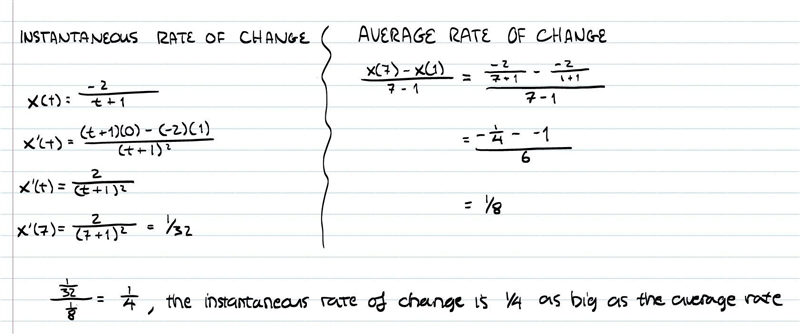 INSTANTANEOUS RATE OF CHANGE
x(t) = -2/(t+1)
x'(t) = ((t+1)(0) - (-2)(1))/(t+1)²
x'(t) = 2/(t+1)²
x'(7) = 2/(7+1)² = 1/32
AVERAGE RATE OF CHANGE
(x(7) - x(1))/(7-1) = (-2/(7+1) - -2/(1+1))/(7-1)
= (-1/4 - -1)/6
= 1/8
(1/32)/(1/8) = 1/4, the instantaneous rate of change is 1/4 as big as the average rate